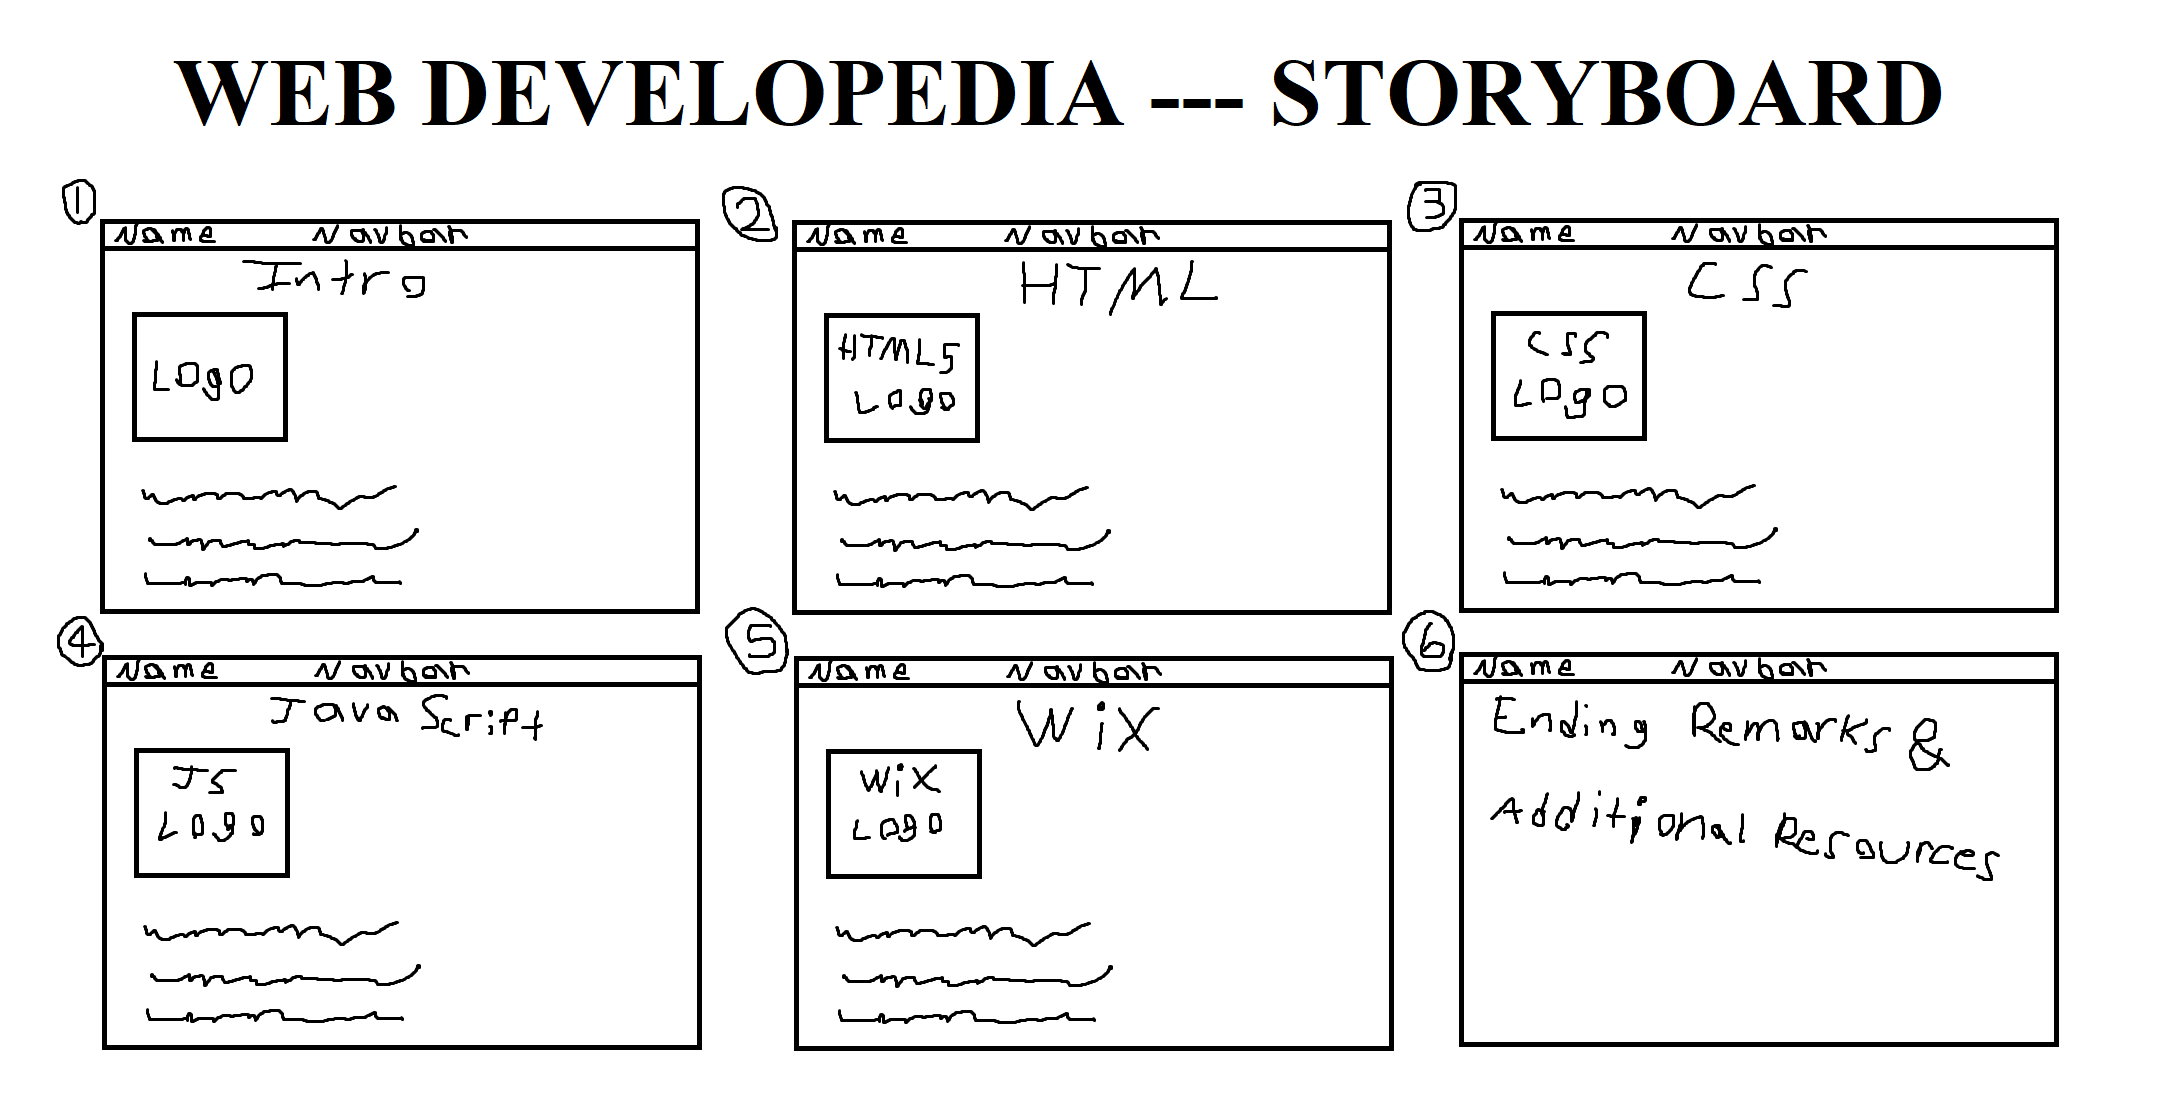 WEB DEVELOPEDIA --- STORYBOARD
1
Name Navbar
Intro
Logo
2
Name Navbar
HTML
HTML5
Logo
3
Name Navbar
CSS
CSS
Logo
4
Name Navbar
JavaScript
JS
Logo
5
Name Navbar
WiX
WiX
Logo
6
Name Navbar
Ending Remarks &
Additional Resources